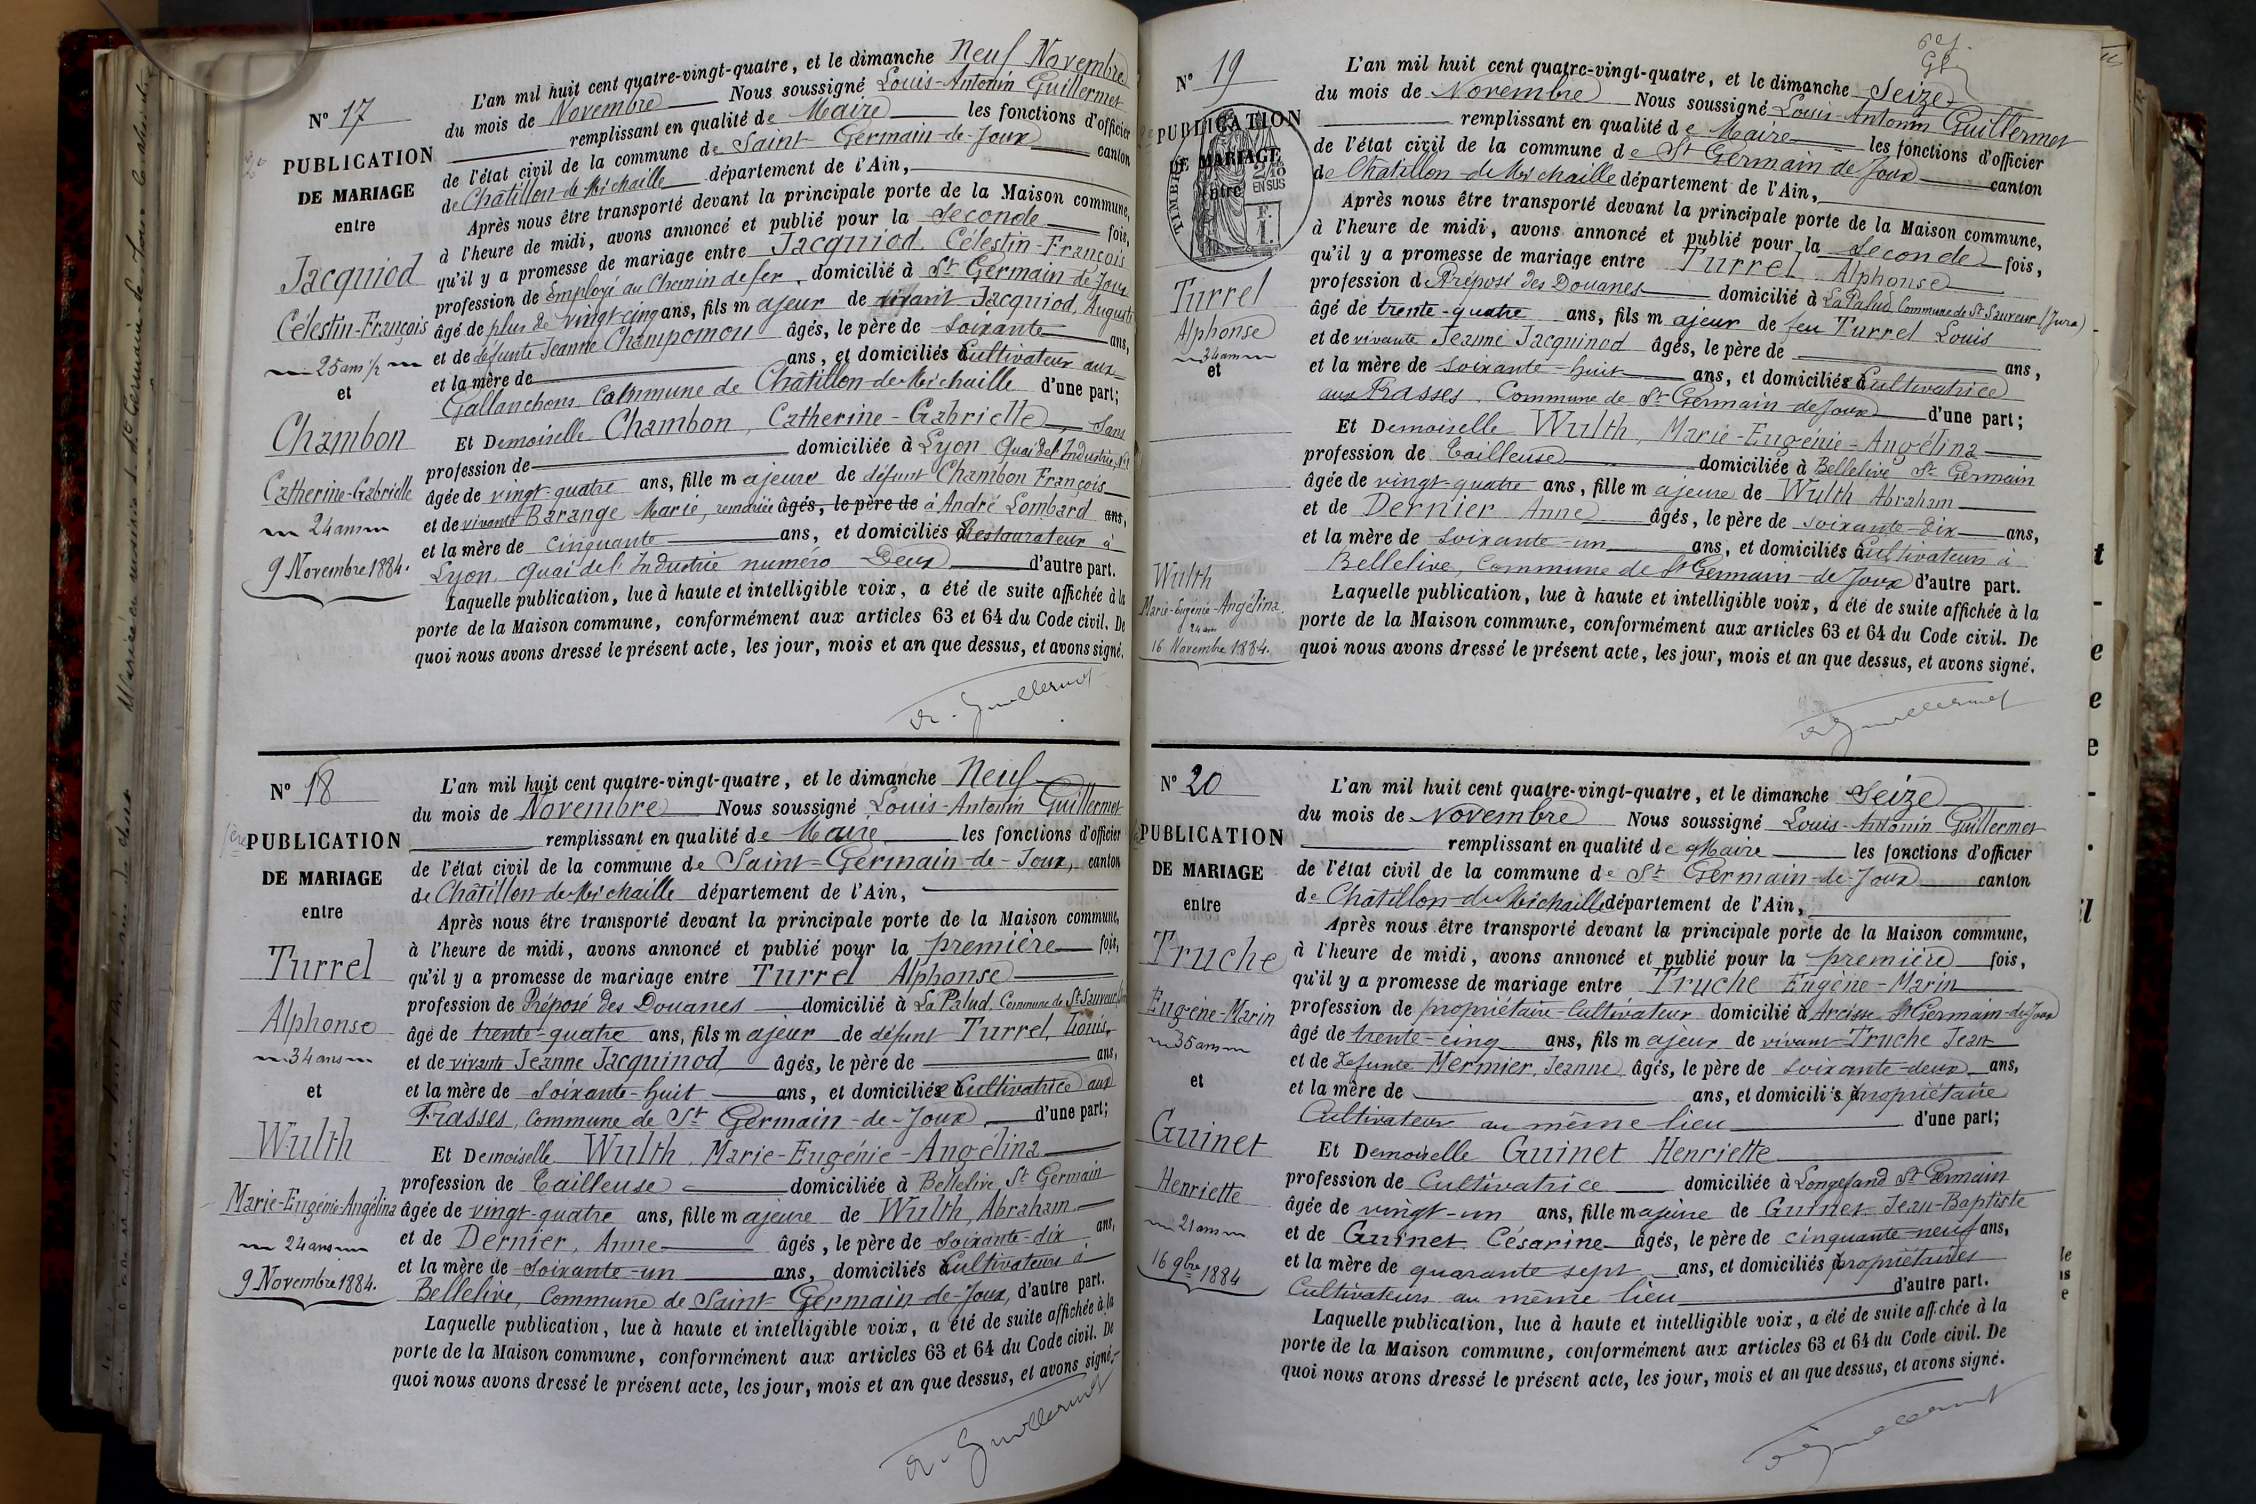 N° 17
PUBLICATION
DE MARIAGE
entre
Jacquiod
Célestin-François
25 ans 1/2
et
Chambon
Catherine-Gabrielle
24 ans
9 Novembre 1884.
L'an mil huit cent quatre-vingt-quatre, et le dimanche Neuf Novembre
du mois de Novembre Nous soussigné Louis-Antonin Guillermet
remplissant en qualité de Maire les fonctions d'officier
de l'état civil de la commune de Saint-Germain-de-Joux canton
de Châtillon-de-Michaille département de l'Ain,
Après nous être transporté devant la principale porte de la Maison commune,
à l'heure de midi, avons annoncé et publié pour la Seconde fois,
qu'il y a promesse de mariage entre Jacquiod Célestin-François
profession de Employé au Chemin de fer, domicilié à St Germain-de-Joux
âgé de plus de vingt-cinq ans, fils majeur de vivant Jacquiod, Auguste
et de défunte Jeanne Champomou âgés, le père de Soixante ans,
et la mère de ans, et domiciliés à Cultivateur aux
Gallanchons Commune de Châtillon-de-Michaille d'une part;
Et Demoiselle Chambon, Catherine-Gabrielle, Sans
profession de domiciliée à Lyon Quai de l'Industrie, N°2
âgée de vingt-quatre ans, fille majeure de défunt Chambon François
et de vivante Barange Marie, remariée âgés, le père de à André Lombard ans,
et la mère de cinquante ans, et domiciliés à Restaurateur à
Lyon, quai de l'Industrie numéro Deux d'autre part.
Laquelle publication, lue à haute et intelligible voix, a été de suite affichée à la
porte de la Maison commune, conformément aux articles 63 et 64 du Code civil. De
quoi nous avons dressé le présent acte, les jour, mois et an que dessus, et avons signé.
Guillermet
N° 18
PUBLICATION
DE MARIAGE
entre
Turrel
Alphonse
34 ans
et
Wulth
Marie-Eugénie-Angélina
24 ans
9 Novembre 1884.
L'an mil huit cent quatre-vingt-quatre, et le dimanche Neuf
du mois de Novembre Nous soussigné Louis-Antonin Guillermet
remplissant en qualité de Maire les fonctions d'officier
de l'état civil de la commune de Saint-Germain-de-Joux, canton
de Châtillon-de-Michaille département de l'Ain,
Après nous être transporté devant la principale porte de la Maison commune,
à l'heure de midi, avons annoncé et publié pour la première fois,
qu'il y a promesse de mariage entre Turrel Alphonse
profession de Préposé des Douanes domicilié à La Palud, Commune de St Sauveur
âgé de trente-quatre ans, fils majeur de défunt Turrel, Louis,
et de vivante Jeanne Jacquinod âgés, le père de ans,
et la mère de soixante-huit ans, et domiciliés à Cultivatrice aux
Frasses, commune de St Germain-de-Joux, d'une part;
Et Demoiselle Wulth, Marie-Eugénie-Angélina
profession de Tailleuse domiciliée à Bellelive, St Germain
âgée de vingt-quatre ans, fille majeure de Wulth, Abraham
et de Dernier, Anne âgés, le père de soixante-dix ans,
et la mère de soixante-un ans, domiciliés à Cultivateurs à
Bellelive, Commune de Saint-Germain-de-Joux, d'autre part.
Laquelle publication, lue à haute et intelligible voix, a été de suite affichée à la
porte de la Maison commune, conformément aux articles 63 et 64 du Code civil. De
quoi nous avons dressé le présent acte, les jour, mois et an que dessus, et avons signé.
Guillermet
N° 19
PUBLICATION
DE MARIAGE
entre
TIMBRE
2/10
EN SUS
Turrel
Alphonse
34 ans
et
Wulth
Marie-Eugénie-Angélina
24 ans
16 Novembre 1884.
L'an mil huit cent quatre-vingt-quatre, et le dimanche Seize
du mois de Novembre Nous soussigné Louis-Antonin Guillermet
remplissant en qualité de Maire les fonctions d'officier
de l'état civil de la commune de St Germain de Joux canton
de Châtillon-de-Michaille département de l'Ain,
Après nous être transporté devant la principale porte de la Maison commune,
à l'heure de midi, avons annoncé et publié pour la Seconde fois,
qu'il y a promesse de mariage entre Turrel Alphonse
profession de Préposé des Douanes domicilié à La Palud, Commune de St Sauveur (Jura)
âgé de trente-quatre ans, fils majeur de feu Turrel Louis
et de vivante Jeanne Jacquinod âgés, le père de ans,
et la mère de soixante-huit ans, et domiciliés à Cultivatrice
aux Frasses, Commune de St Germain-de-Joux d'une part;
Et Demoiselle Wulth, Marie-Eugénie-Angélina
profession de Tailleuse domiciliée à Bellelive St Germain
âgée de vingt-quatre ans, fille majeure de Wulth Abraham
et de Dernier Anne âgés, le père de soixante-dix ans,
et la mère de soixante-un ans, et domiciliés à Cultivateurs à
Bellelive, Commune de St Germain-de-Joux d'autre part.
Laquelle publication, lue à haute et intelligible voix, a été de suite affichée à la
porte de la Maison commune, conformément aux articles 63 et 64 du Code civil. De
quoi nous avons dressé le présent acte, les jour, mois et an que dessus, et avons signé.
Guillermet
N° 20
PUBLICATION
DE MARIAGE
entre
Truche
Eugène-Marin
35 ans
et
Guinet
Henriette
21 ans
16 9bre 1884
L'an mil huit cent quatre-vingt-quatre, et le dimanche Seize
du mois de Novembre Nous soussigné Louis-Antonin Guillermet
remplissant en qualité de Maire les fonctions d'officier
de l'état civil de la commune de St Germain-de-Joux canton
de Châtillon-de-Michaille département de l'Ain,
Après nous être transporté devant la principale porte de la Maison commune,
à l'heure de midi, avons annoncé et publié pour la première fois,
qu'il y a promesse de mariage entre Truche Eugène-Marin
profession de propriétaire-Cultivateur domicilié à Arcisse St Germain-de-Joux
âgé de trente-cinq ans, fils majeur de vivant Truche Jean
et de défunte Mermier, Jeanne âgés, le père de soixante-deux ans,
et la mère de ans, et domiciliés à propriétaire
Cultivateur au même lieu d'une part;
Et Demoiselle Guinet Henriette
profession de Cultivatrice domiciliée à Longefand St Germain
âgée de vingt-un ans, fille majeure de Guinet Jean-Baptiste
et de Guinet Césarine âgés, le père de cinquante-neuf ans,
et la mère de quarante sept ans, et domiciliés à propriétaires
Cultivateurs au même lieu d'autre part.
Laquelle publication, lue à haute et intelligible voix, a été de suite affichée à la
porte de la Maison commune, conformément aux articles 63 et 64 du Code civil. De
quoi nous avons dressé le présent acte, les jour, mois et an que dessus, et avons signé.
Guillermet